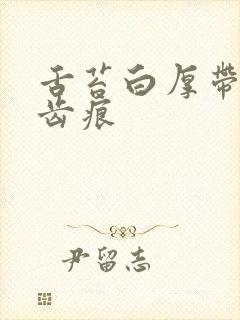 舌苔白厚带
齿痕
尹留志